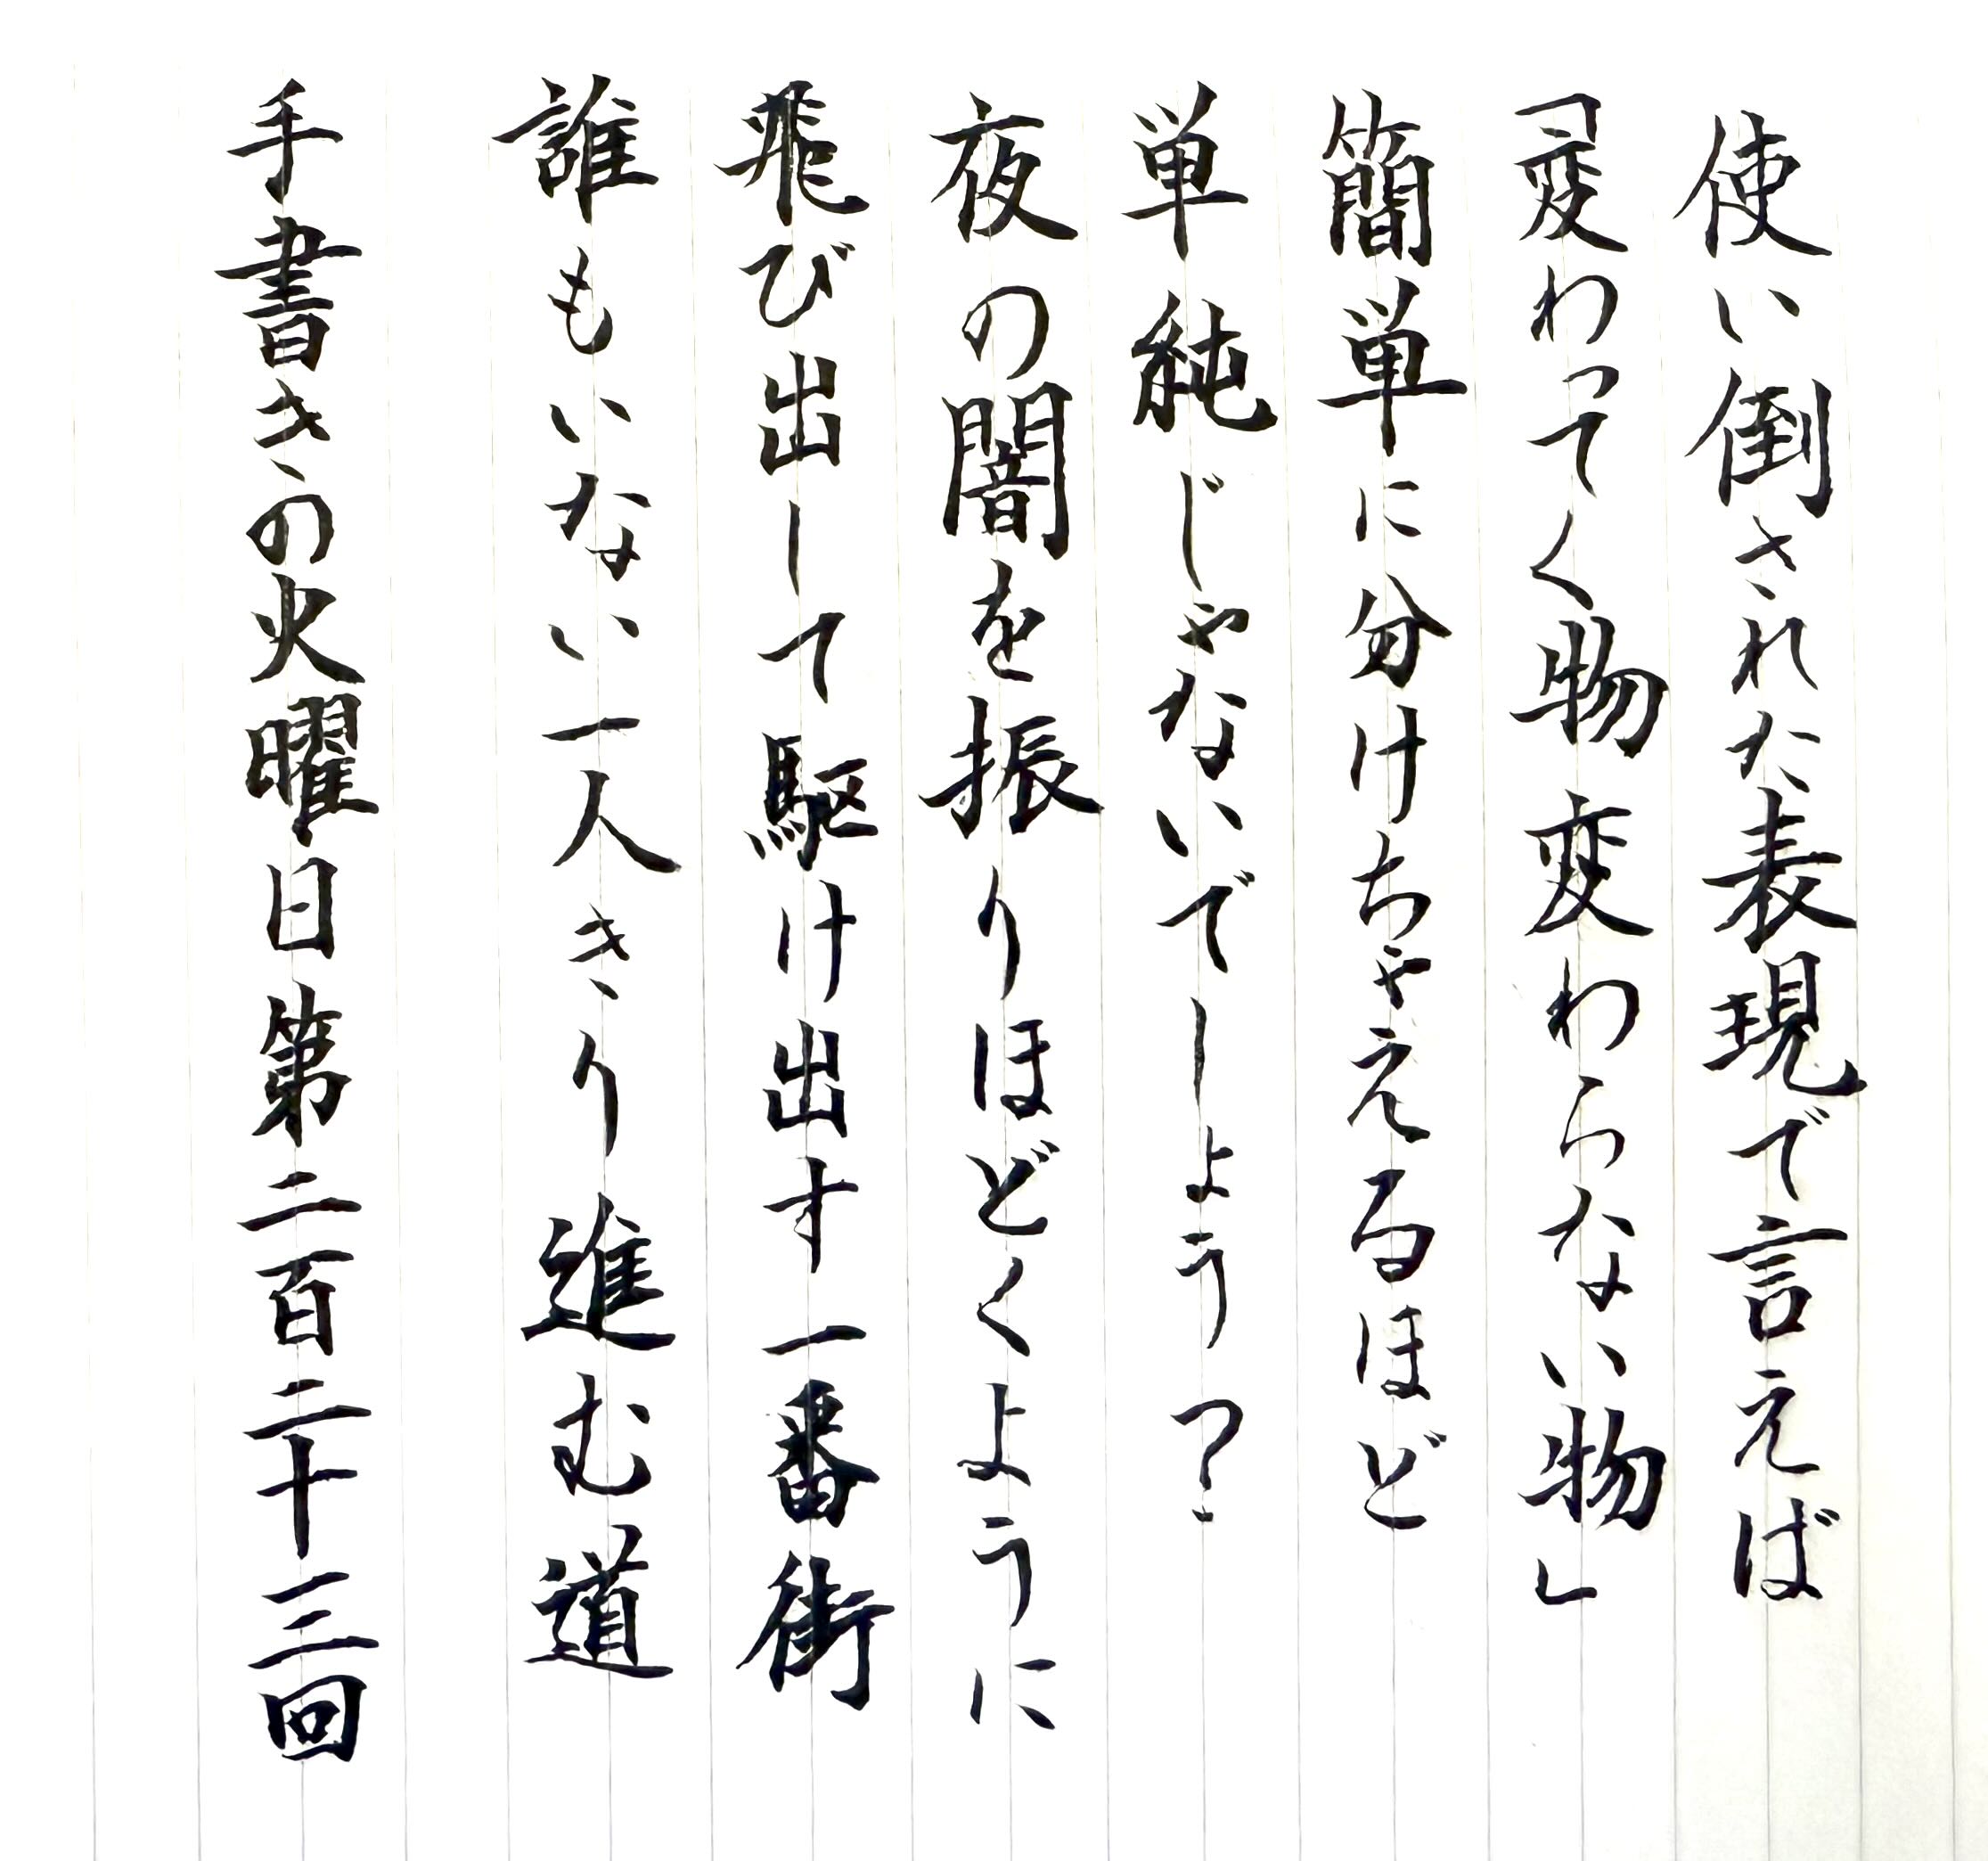 使い倒された表現で言えば
「変わってく物変わらない物」
簡単に分けちゃえるほど
単純じゃないでしょう?
夜の闇を振りほどくように
飛び出して駆け出す一番街
誰もいない一人きり進む道
手書きの火曜日第二百二十三回